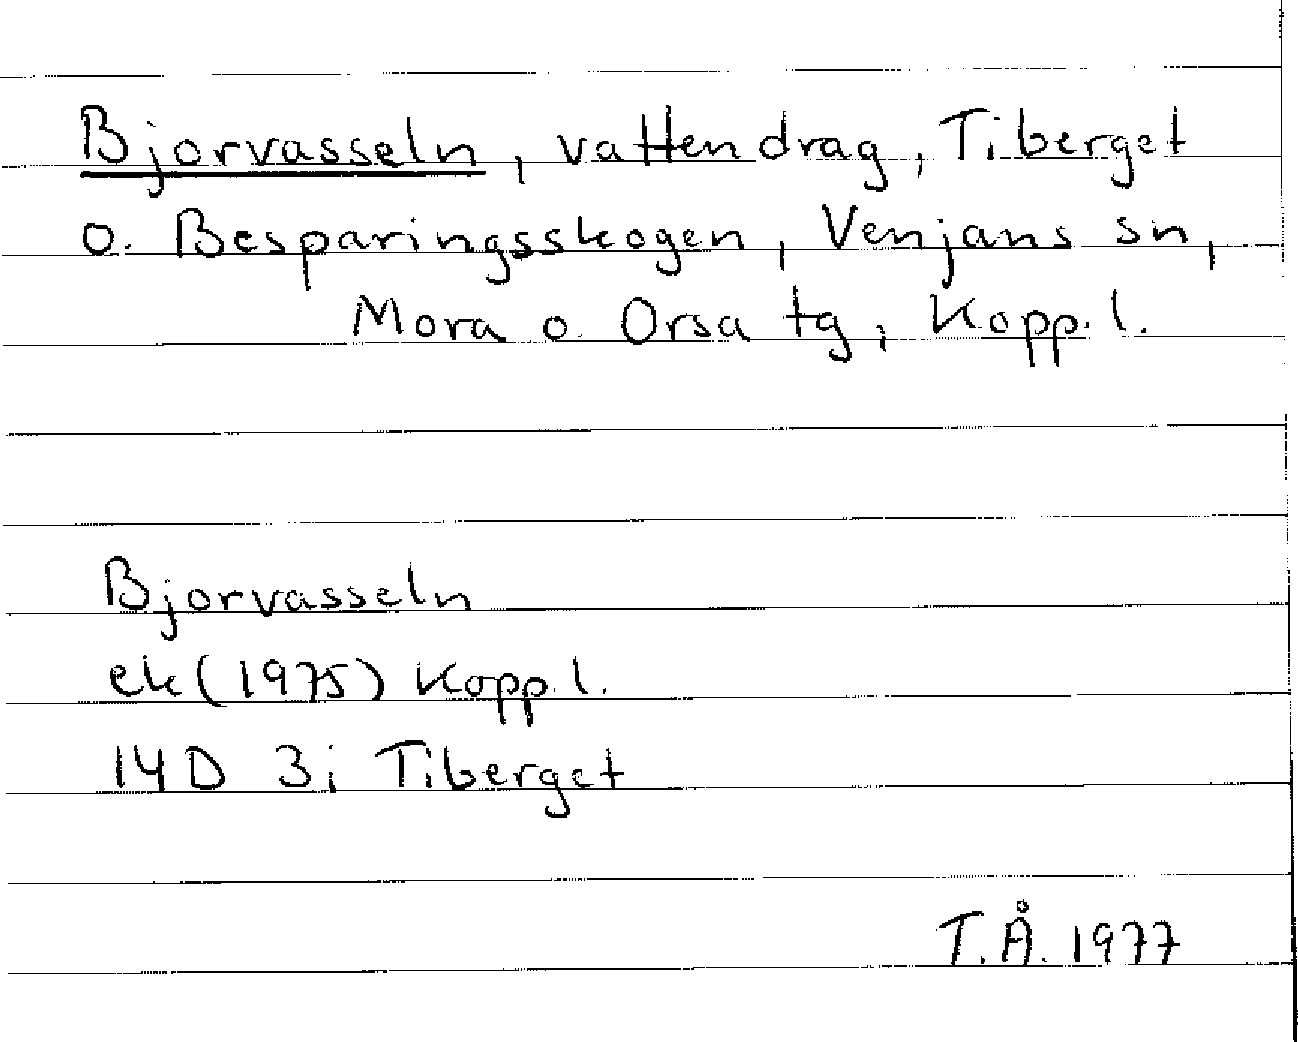 Bjorvasseln, vattendrag, Tiberget
o. Besparingsskogen, Venjans sn,
Mora o. Orsa tg, Kopp. l.
Bjorvasseln
ek (1975) Kopp. l.
14D 3i Tiberget
T.Å. 1977